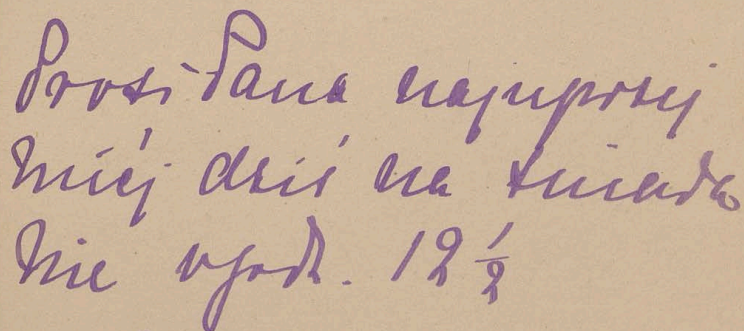 Prosi Pana najuprzej
miej dziś na śniada
nie o godz. 12 1/2